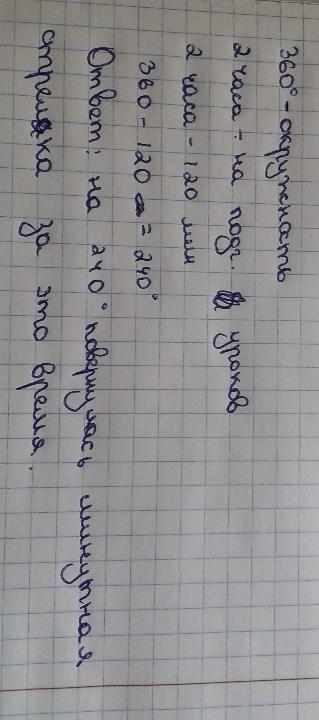 360° - окружнать
2 часа - на подг. уроков
2 часа - 120 мин
360 - 120 = 240°
Ответ: на 240° повернулась минутная
стрелка за это время.